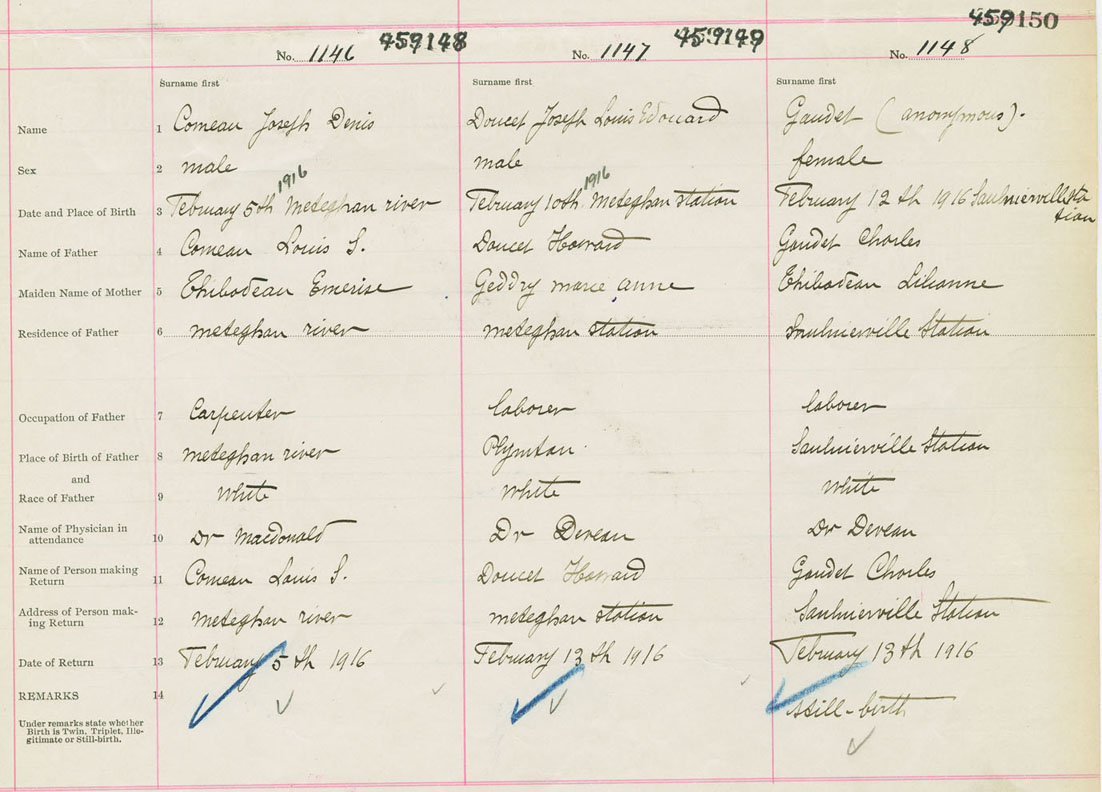 459150
No. 1146 459148 No. 1147 459149 No. 1148
Surname first Surname first Surname first
Name 1 Comeau Joseph Denis Doucet Joseph Louis Edouard Gaudet (anonymous).
Sex 2 male male female
1916 1916
Date and Place of Birth 3 February 5th Meteghan river February 10th Meteghan station February 12th 1916 Saulnierville sta
tion
Name of Father 4 Comeau Louis S. Doucet Howard Gaudet Charles
Maiden Name of Mother 5 Thibodeau Emerise Geddry marie anne Thibodeau Lilianne
Residence of Father 6 meteghan river meteghan station Saulnierville Station
Occupation of Father 7 Carpenter laborer laborer
Place of Birth of Father 8 meteghan river Plymton Saulnierville Station
and
Race of Father 9 White White White
Name of Physician in
attendance 10 Dr Macdonald Dr Deveau Dr Deveau
Name of Person making
Return 11 Comeau Louis S. Doucet Howard Gaudet Charles
Address of Person mak-
ing Return 12 meteghan river meteghan station Saulnierville Station
Date of Return 13 February 5th 1916 February 13th 1916 February 13th 1916
REMARKS 14 still-birth
Under remarks state whether
Birth is Twin, Triplet, Ille-
gitimate or Still-birth.